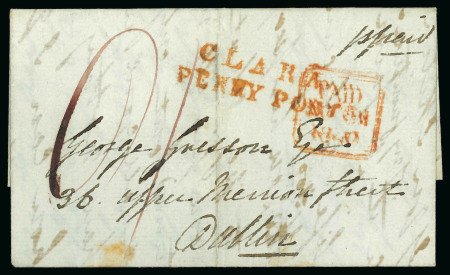 ppaid
CLARA
PENNY POST
PAID
George Gresson Esqr
36 upper Merrion Street
Dublin